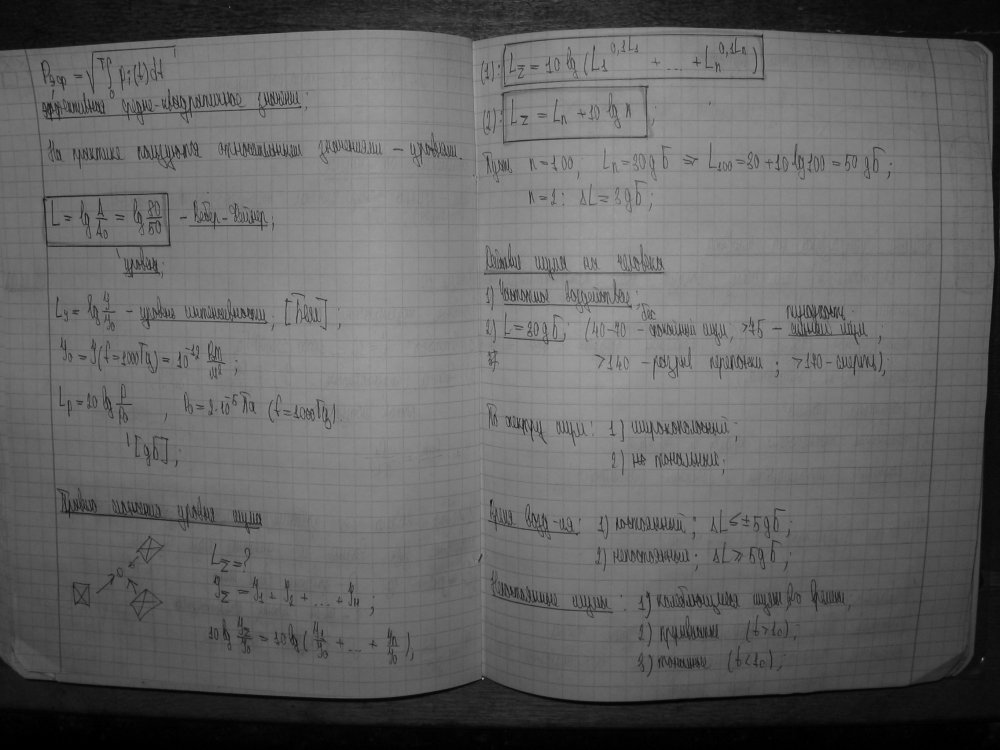 Pэф = √(∫₀ᵀ pi(t)dt
средне-квадратичное значение;
На практике пользуются относительными значениями – уровнями.
L = lg A/A₀ = lg 80/50 – Вебер-Фехнер;
уровень;
Lу = lg У/У₀ – уровень интенсивности, [Бел];
У₀ = У(f=1000Гц) = 10⁻¹² Вт/м²;
Lp = 20 lg P/P₀, P₀ = 2·10⁻⁵ Па (f=1000Гц).
[дБ];
Правило сложения уровня шума
LΣ = ?
УΣ = У₁ + У₂ + ... + Уn;
10 lg УΣ/У₀ = 10 lg (У₁/У₀ + ... + Уn/У₀);
(1): LΣ = 10 lg (L₁^0,1L₁ + ... + Ln^0,1Ln)
(2): LΣ = Ln + 10 lg n;
Пусть n = 100, Ln = 30 дБ ⇒ L₁₀₀ = 30 + 10 lg 100 = 50 дБ;
n = 2: ΔL = 3 дБ;
Действие шума на человека
1) Частотное воздействие;
2) L = 80 дБ; (40-70 – спокойный шум, >75 – шум,
>140 – разрыв перепонки; >170 – смерть);
По спектру шум: 1) широкополосный;
2) тональные;
Время возд-ия: 1) постоянный; ΔL ≤ ±5 дБ;
2) непостоянный; ΔL ≥ 5 дБ;
Непостоянные шумы: 1) колеблющиеся шумы во времени,
2) прерывистые (t>10);
3) (t<10);